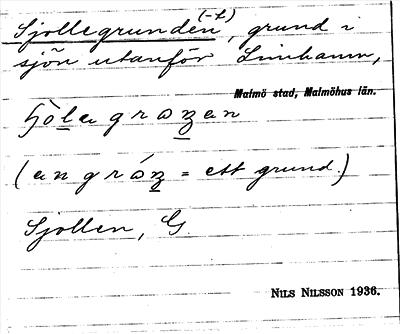 Sjollegrunden (-t), grund i
sjön utanför Limhamn,
Malmö stad, Malmöhus län.
(en = ett grund.)
Sjollen, G.
NILS NILSSON 1936.